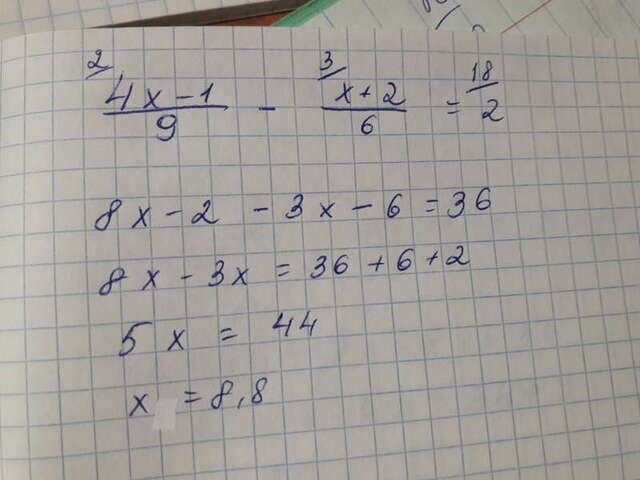 2/ 4x-1/9 - 3/ x+2/6 = 18/ 2
8x-2 - 3x-6 = 36
8x-3x = 36+6+2
5x = 44
x = 8,8